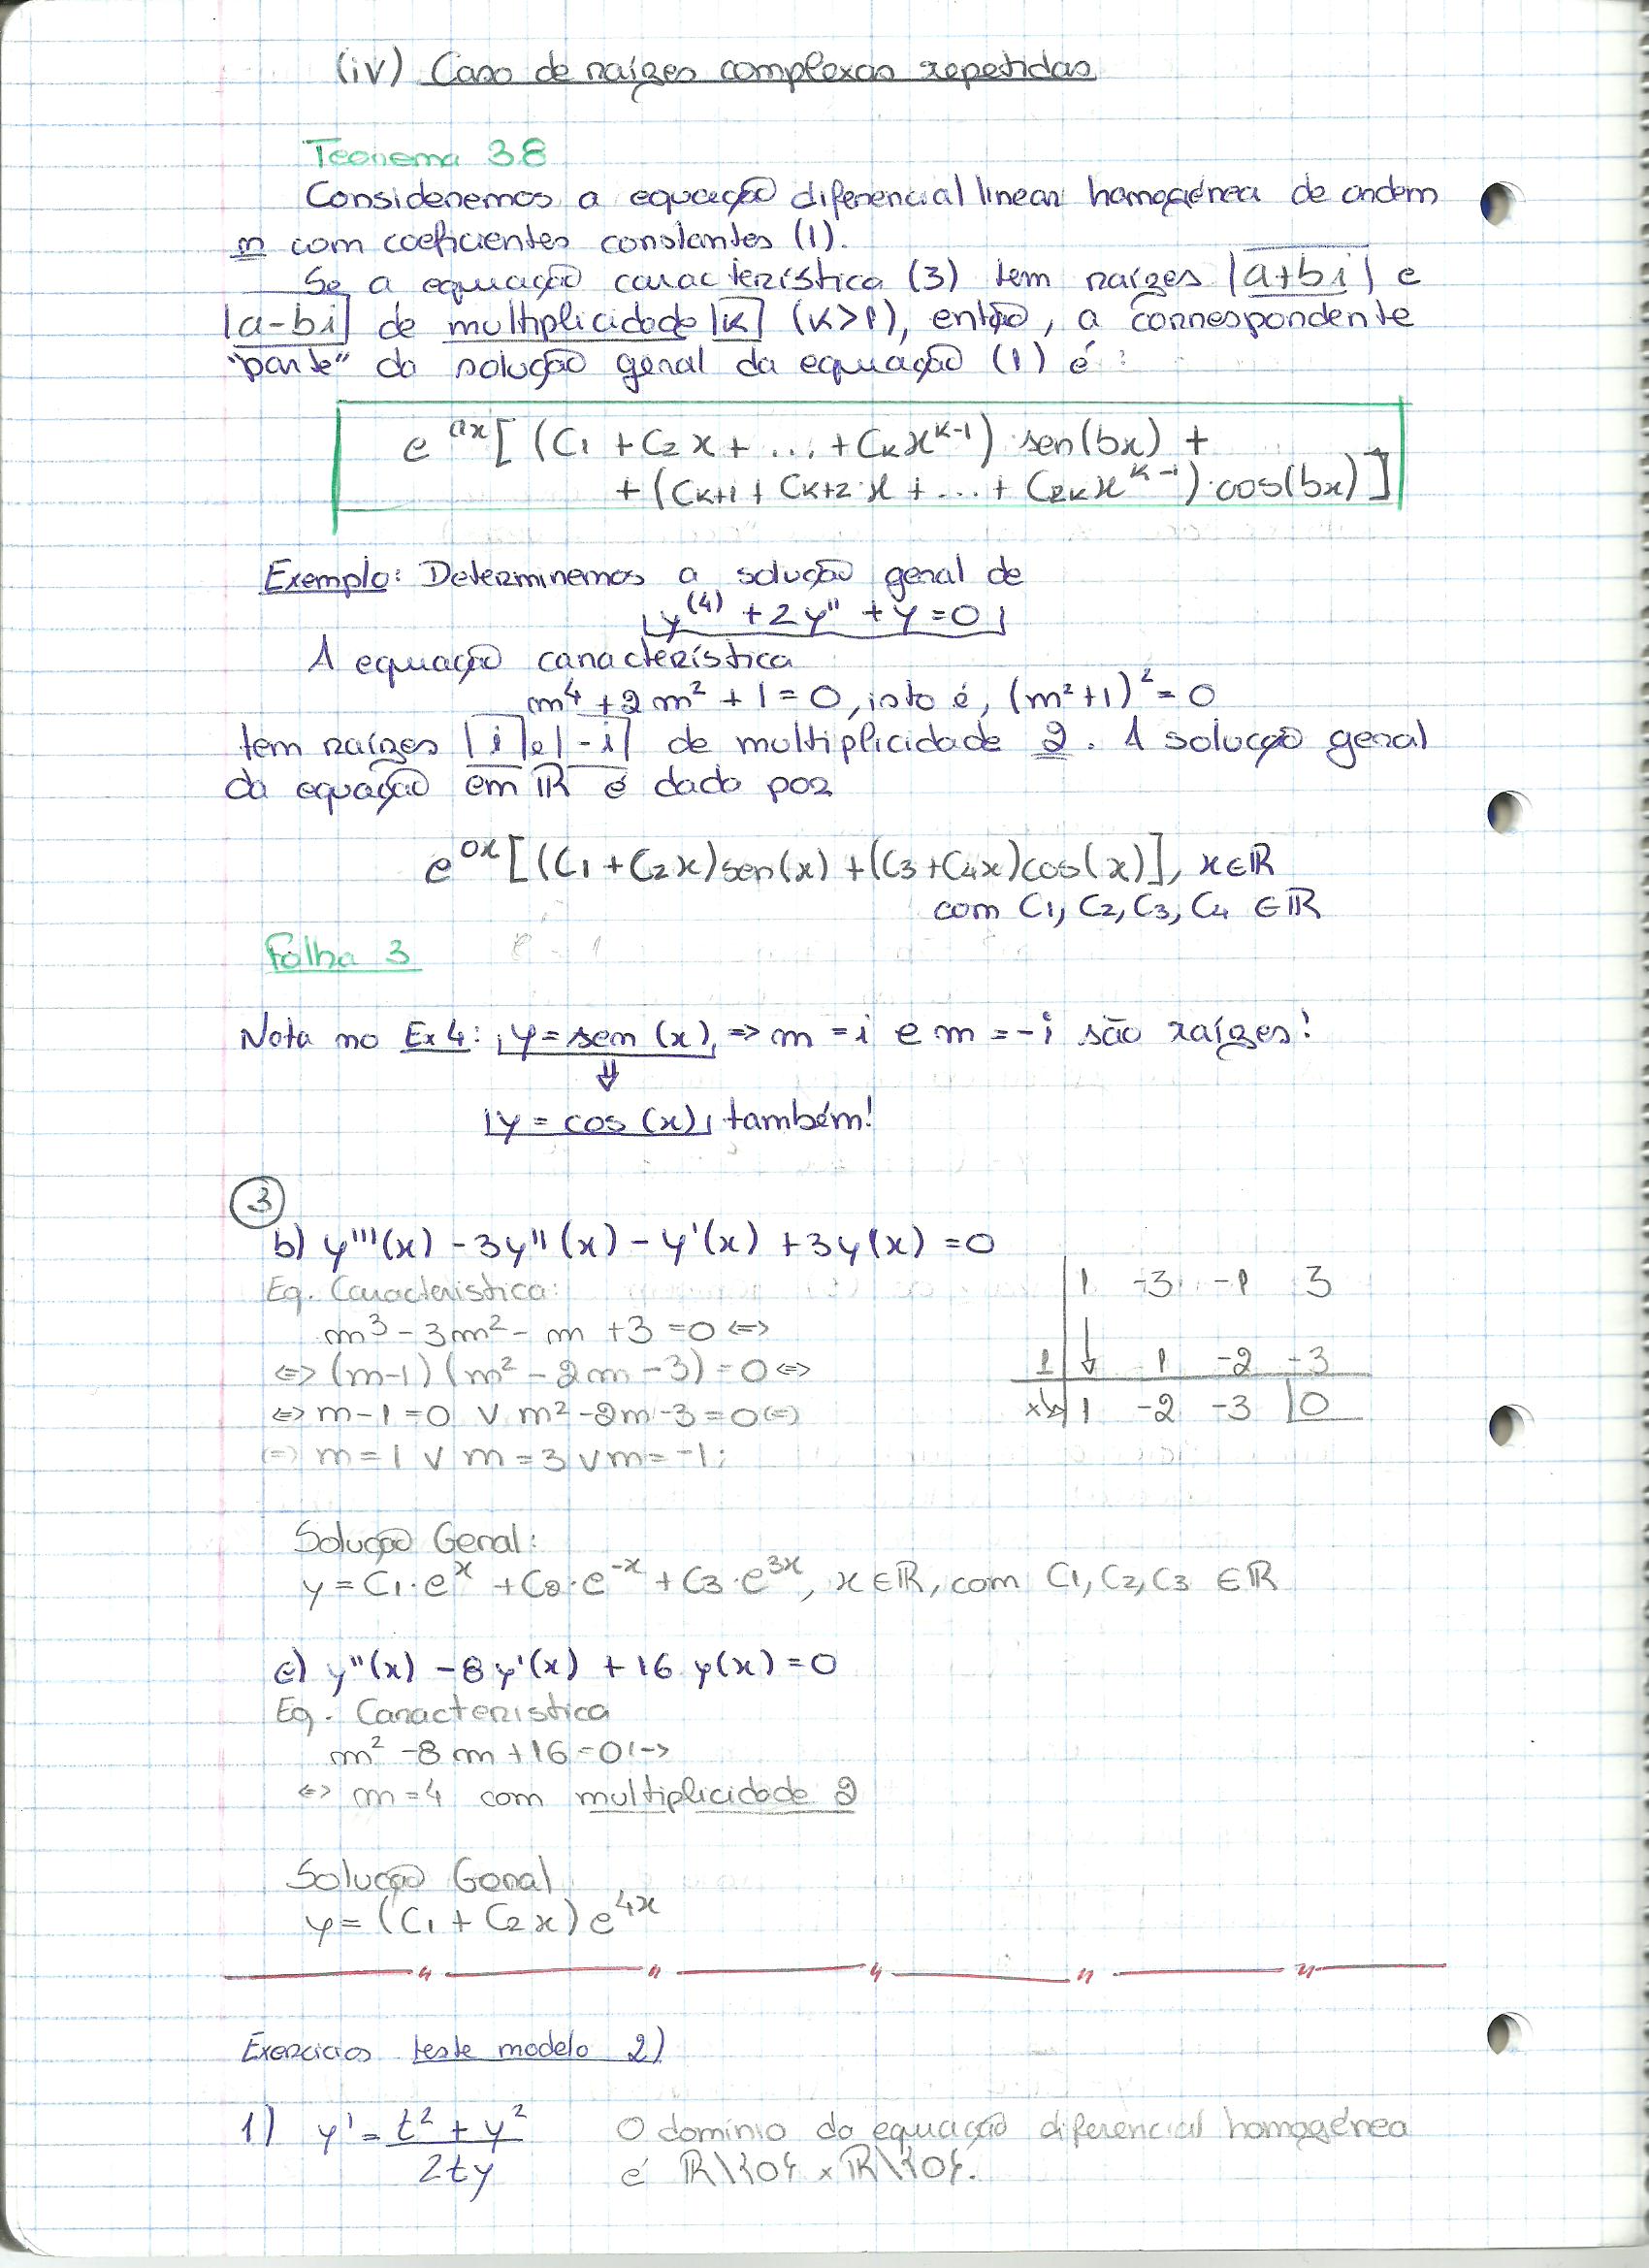 (iv) Caso de raízes complexas repetidas
Teorema 3.8
Consideremos a equação diferencial linear homogénea de ordem
n com coeficientes constantes (1).
Se a equação característica (3) tem raízes |a+bi| e
|a-bi| de multiplicidade |k| (k>1), então, a correspondente
"parte" da solução geral da equação (1) é:
e^{ax}[(C1 + C2x + ... + Ckx^{k-1}) sen(bx) +
+ (Ck+1 + Ck+2·x + ... + C2kx^{k-1})·cos(bx)]
Exemplo: Determinemos a solução geral de
y^{(4)} + 2y'' + y = 0
A equação característica
m⁴ + 2m² + 1 = 0, isto é, (m²+1)² = 0
tem raízes |i| e |-i| de multiplicidade 2. A solução geral
da equação em ℝ é dada por
e^{0x}[(C1 + C2x)sen(x) + (C3 + C4x)cos(x)], x∈ℝ
com C1, C2, C3, C4 ∈ℝ
Folha 3
Nota no Ex 4: y = sen(x) => m = i e m = -i são raízes!
⇓
y = cos(x) também!
3
b) y'''(x) - 3y''(x) - y'(x) + 3y(x) = 0
Eq. Caracteristica:
m³ - 3m² - m + 3 = 0 <=>
<=> (m-1)(m² - 2m - 3) = 0 <=>
<=> m-1 = 0 ∨ m² - 2m - 3 = 0 <=>
<=> m = 1 ∨ m = 3 ∨ m = -1;
1 -3 -1 3
1 ↓ 1 -2 -3
1 -2 -3 |0
Solução Geral:
y = C1·e^x + C2·e^{-x} + C3·e^{3x}, x∈ℝ, com C1, C2, C3 ∈ℝ
c) y''(x) - 8y'(x) + 16y(x) = 0
Eq. Caracteristica
m² - 8m + 16 = 0 <=>
<=> m = 4 com multiplicidade 2
Solução Geral
y = (C1 + C2x)e^{4x}
Exercicios teste modelo 2)
1) y' = (t² + y²)/(2ty) O dominio da equação diferencial homogénea
é ℝ\{0} x ℝ\{0}.